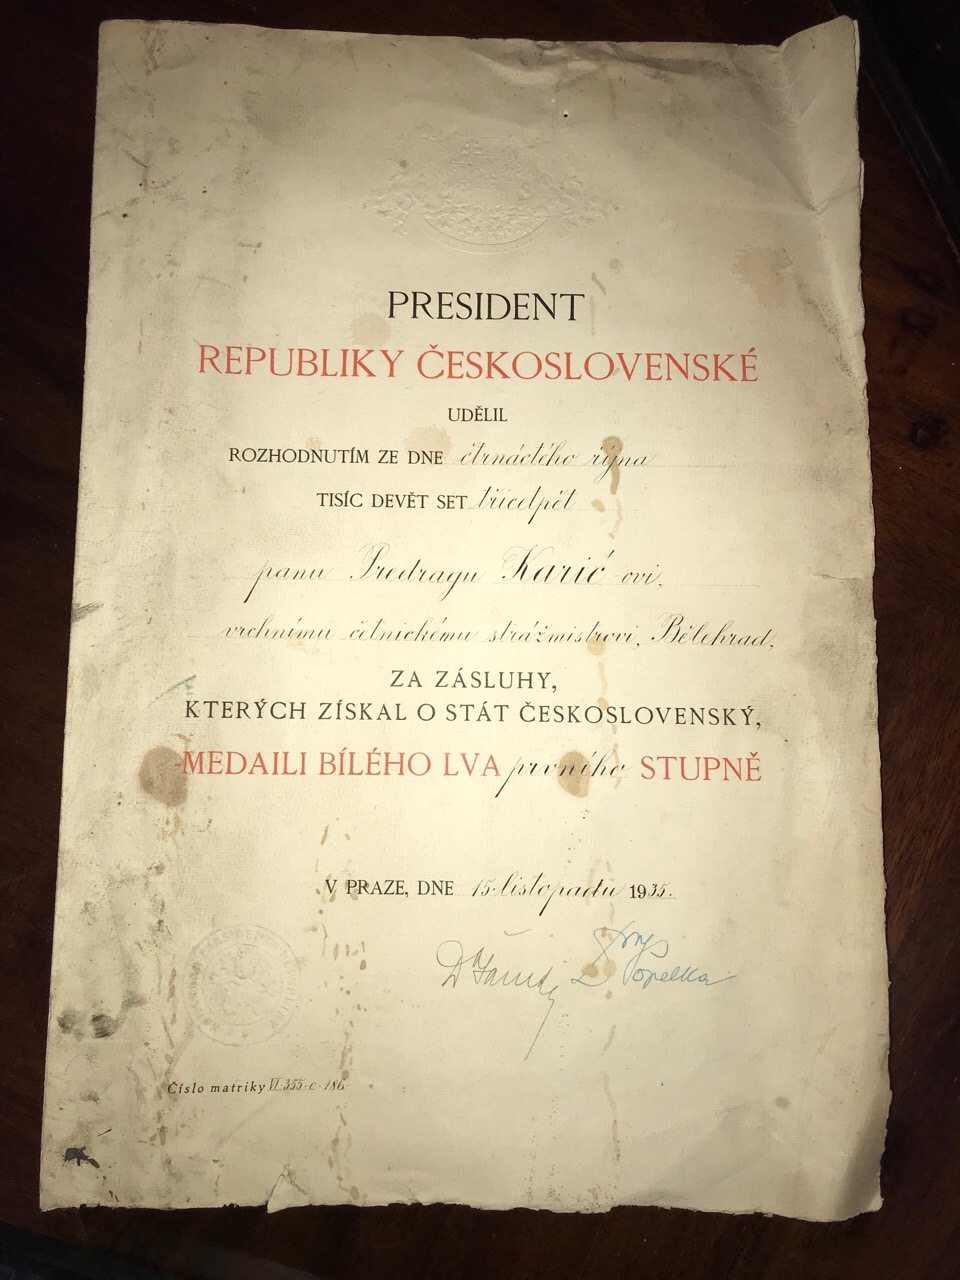 PRESIDENT
REPUBLIKY ČESKOSLOVENSKÉ
UDĚLIL
ROZHODNUTÍM ZE DNE čtrnáctého října
TISÍC DEVĚT SET třicetpět
panu Predragu Karić-ovi,
vrchnímu četnickému strážmistrovi, Bělehrad,
ZA ZÁSLUHY,
KTERÝCH ZÍSKAL O STÁT ČESKOSLOVENSKÝ,
MEDAILI BÍLÉHO LVA prvního STUPNĚ
V PRAZE, DNE 15. listopadu 1935.
Popelka
Číslo matriky VI-355-c-186